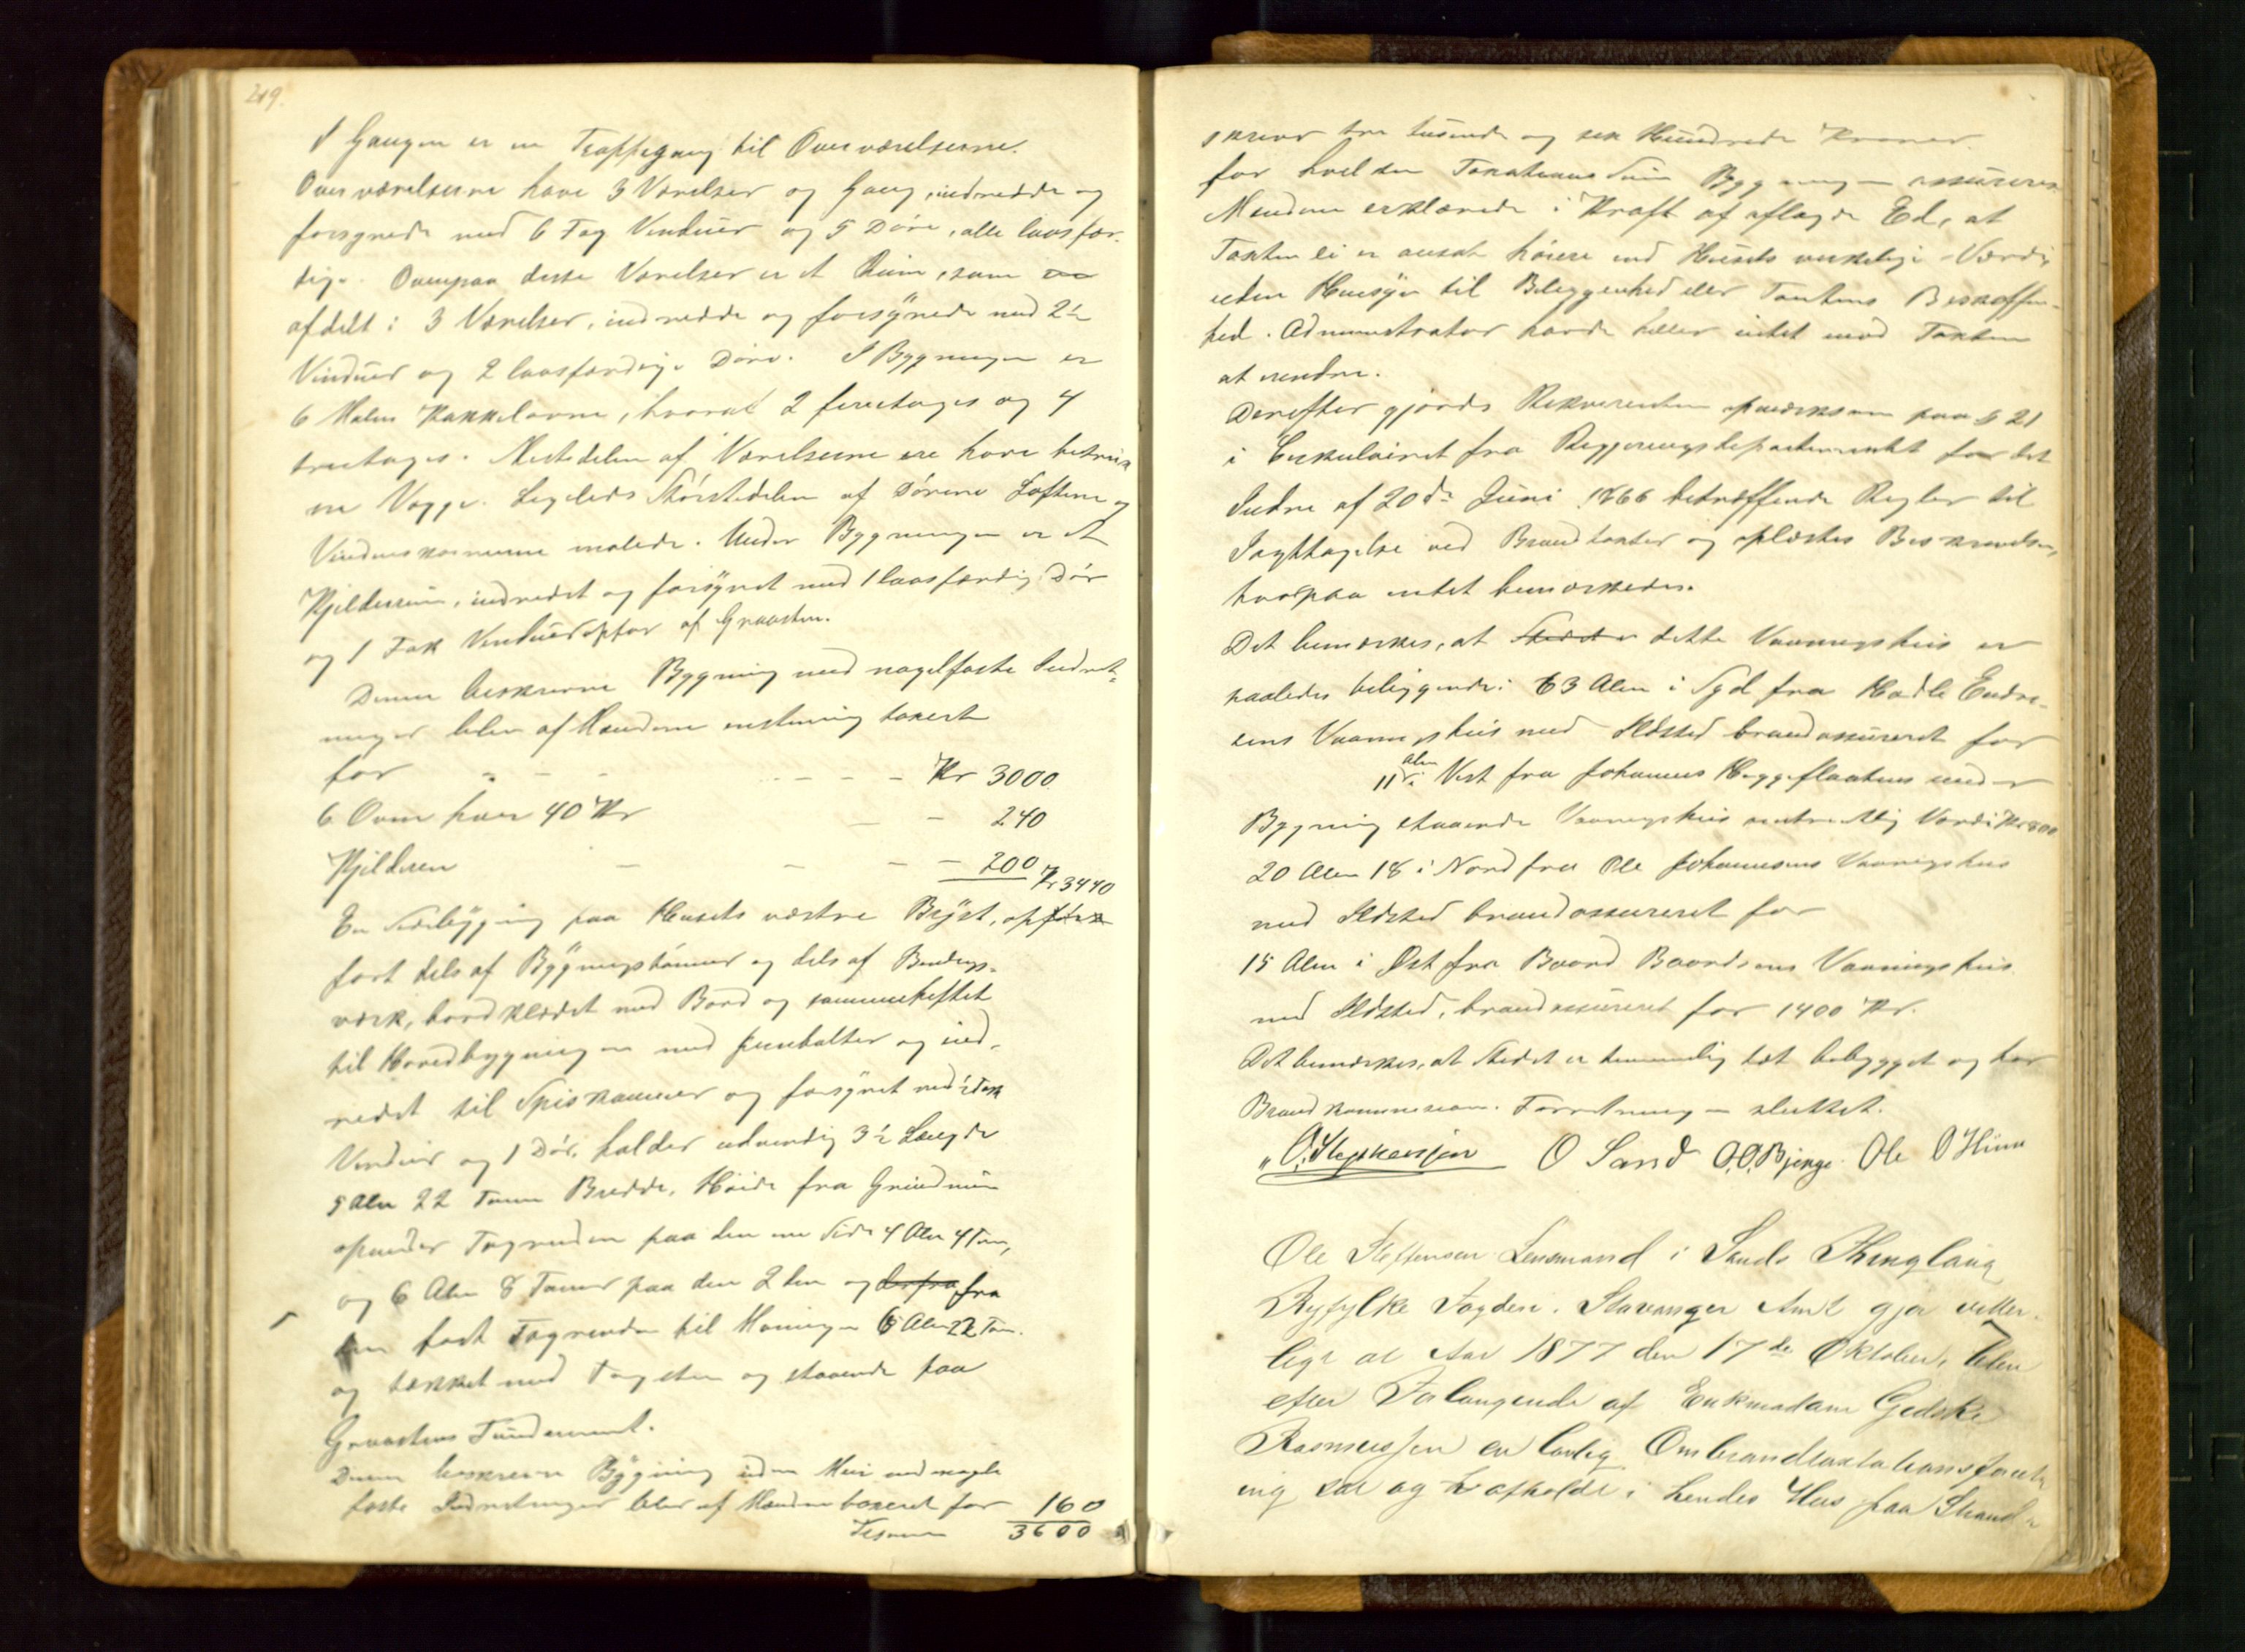 219.
I Gangen er en Trappegang til Overværelserne.
Overværelserne have 3 Værelser og Gang, indredde og
forsynede med 6 Fag Vinduer og 5 Døre, alle laasfær-
dige. Ovenpaa disse Værelser er et Rum, som er
afdelt i 3 Værelser, indredde og forsynede med 2½
Vinduer og 2 laasfærdige Døre. I Bygningen er
6 Kakkelovne, hvoraf 2 fireetages og 4
treetages. Mestedelen af Værelserne ere have betruk
ne Vægge. Ligeledes Størstedelen af Dørene Lofterne og
Vindueskarmerne malede. Under Bygningen er et
Kjelderrum, indredet og forsynet med 1 laasfærdig Dør
og 1 Fak Vinduer opfør af Graasten.
Denne beskrevne Bygning med nagelfaste Indret-
ninger blev af Mændene enstemmig taxeret
for - - - - - - Kr 3000
6 Ovne hver 40 Kr - - 240
Kjelderen - - - - 200 Kr 3440
En Tilbygning paa Husets vestre Bryst, opføre
ført dels af Bygningstømmer og dels af Bindings-
værk, bordklædet med Bord og sammenheftet
til Hovedbygningen med Jernbolter og ind-
redet til Spiskammer og forsynet med ½ Fak
Vinduer og 1 Dør, holder udvendig 3½ Længde
5 Alen 22 Tommer Bredde, Høide fra Grundmur
op under Tagrenden paa den ene Side 4 Alen 4 Tom,
og 6 Alen 8 Tommer paa den 2den og derfra fra
den først Tagrenden til Mønningen 6 Alen 22 Tom.
og tækket med Tagsten og staaende paa
Graastens Fundament.
Denne beskrevne Bygning uden Mur med nagle
faste Indretninger blev af Mændene taxeret for 160
Tilsammen 3600
skriver tre tusende og sex Hundrede Kroner.
for hvilken Taxationssum Bygningen assureres
Mændene erklærede i Kraft af aflagde Ed, at
Taxten ei er ansat høiere end Husets virkelige Værdi
uden Hensyn til Beliggenhed eller Tomtens Beskaffen-
hed. Administrator havde heller intet mod Taxten
at erindre.
Derefter gjordes Rekvirenten opmærksom paa § 21
i Cirkulairet fra Regjeringsdepartementet for det
Indre af 20de Juni 1866 betræffende Regler til
Iagttagelse ved Brandtaxter og oplæstes Beskrivelsen,
hvorpaa intet bemærkedes.
Det bemærkes, at Stedet er dette Vaaningshus er
saaledes beliggende: 63 Alen i Syd fra Endre-
sens Vaaningshus med Ildsted brandassureret for
11 Alen i Vest fra Johannes Heggeflaatens under
Bygning staaende Vaaningshus omtrentlig Værdi Kr 800
20 Alen 18 i Nord fra Ole Johannesens Vaaningshus
med Ildsted brandassureret for
15 Alen i Øst fra Baard Baardsens Vaaningshus
med Ildsted, brandassureret for 1400 Kr.
Det bemærkes, at Stedet er temmelig tæt bebygget og har
Brandkommission. Forretningen sluttet.
O. Stephensen O Sand O.O. Bjerge Ole O
Ole Steffensen Lensmand i Sands Thinglaug
Ryfylke Fogderi. Stavanger Amt gjør vitter-
ligt at Aar 1877 den 17de Oktober, blev
efter Forlangende af Enkmadame Gedske
Rasmussen en lovlig Ombrandtaxtationsforretn
ing sat og afholdt i hendes Hus paa Strand-